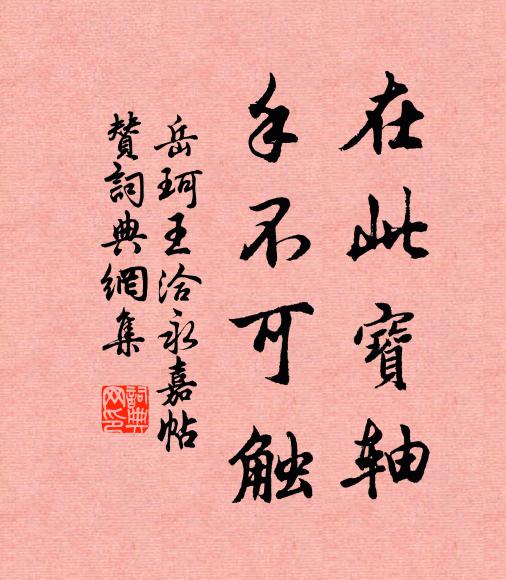 在此寶轴
手不可触
岳珂王洽永嘉帖
賛詞典網集
詞典
网印